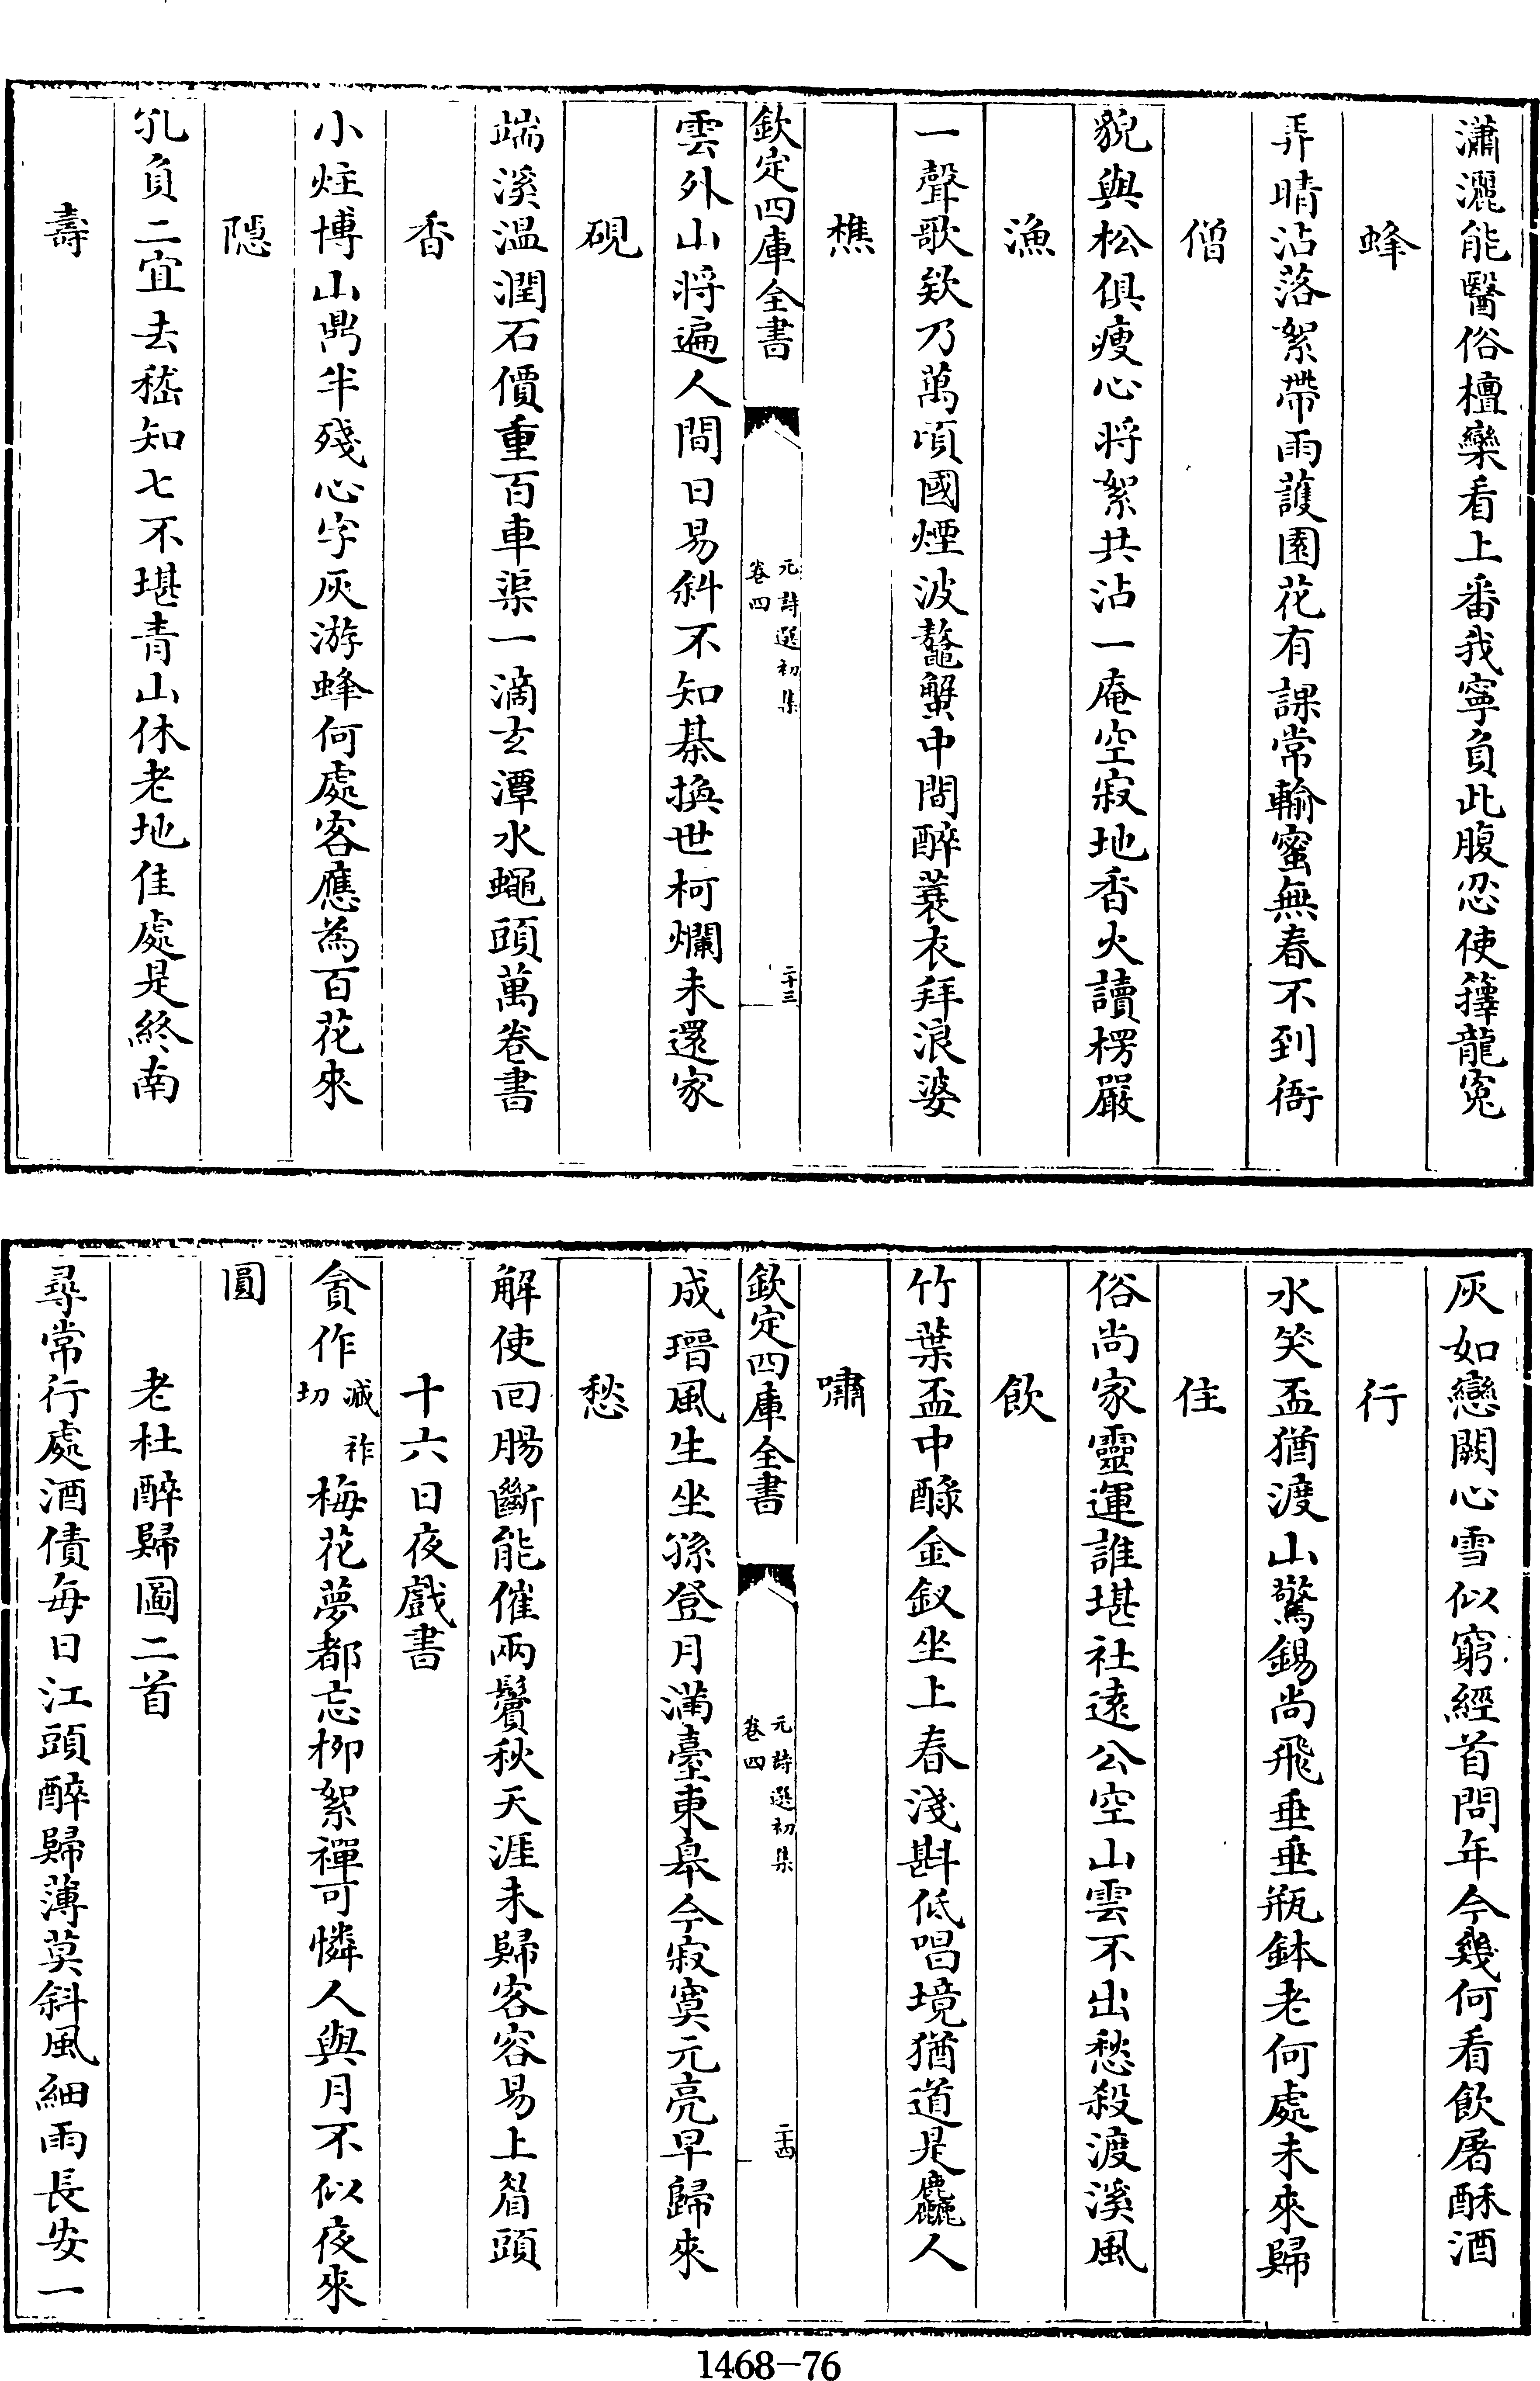 瀟灑能醫俗檀欒看上番我寧負此腹忍使籜龍寃
蜂
弄晴沾落絮帶雨護園花有課常輸蜜無春不到衙
僧
貌與松俱瘦心將絮共沾一庵空寂地香火讀楞嚴
漁
一聲歌欸乃萬頃國煙波鼇蟹中間醉蓑衣拜浪婆
樵
欽定四庫全書
元詩選初集
卷四
二十三
雲外山將遍人間日易斜不知棊換世柯爛未還家
硯
端溪溫潤石價重百車渠一滴玄潭水蠅頭萬卷書
香
小炷博山鼎半殘心字灰游蜂何處客應為百花來
隠
孔負二宜去嵇知七不堪青山休老地佳處是終南
壽
灰如戀闕心雪似窮經首問年今幾何看飲屠酥酒
行
水笑盃猶渡山驚錫尚飛垂垂瓶鉢老何處未來歸
住
俗尚家靈運誰堪社遠公空山雲不出愁殺渡溪風
飲
竹葉盃中醁金釵坐上春淺斟低唱境猶道是麤人
嘯
欽定四庫全書
元詩選初集
卷四
二十四
成瑨風生坐孫登月滿臺東臯今寂寞元亮早歸來
愁
解使回腸斷能催兩鬢秋天涯未歸客容易上眉頭
十六日夜戲書
貪作減祚切梅花夢都忘柳絮禪可憐人與月不似夜來
圓
老杜醉歸圖二首
尋常行處酒債每日江頭醉歸薄莫斜風細雨長安一
1468-76